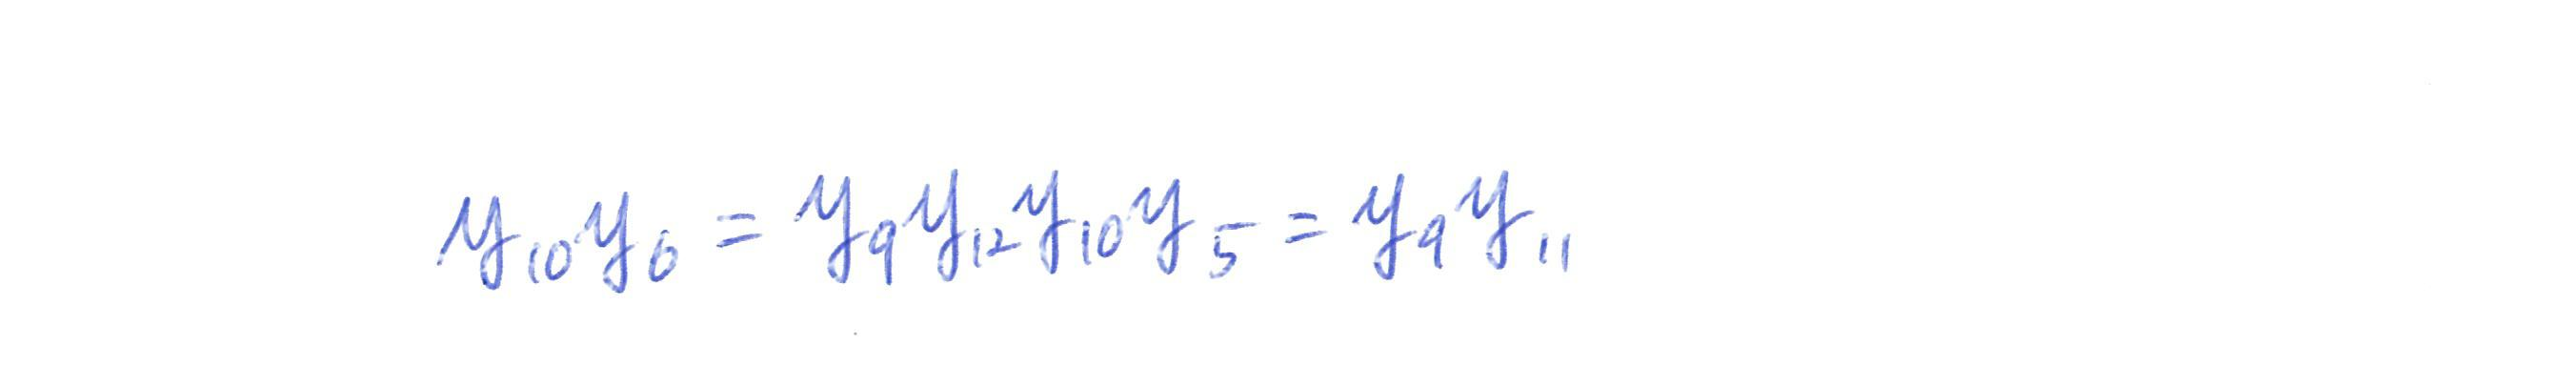 y₁₀y₆ = y₉y₁₂y₁₀y₅ = y₉y₁₁